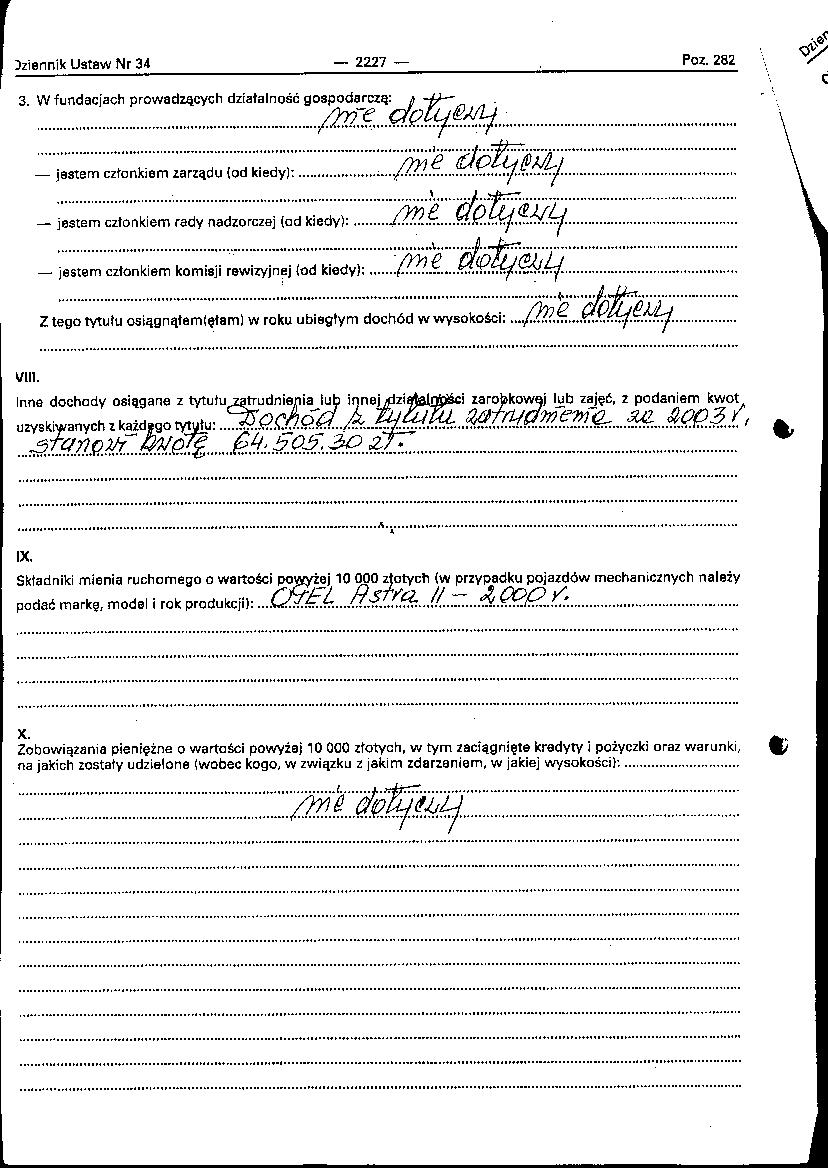 Dziennik Ustaw Nr 34 — 2227 — Poz. 282
3. W fundacjach prowadzących działalność gospodarczą: nie dotyczy
— jestem członkiem zarządu (od kiedy): nie dotyczy
— jestem członkiem rady nadzorczej (od kiedy): nie dotyczy
— jestem członkiem komisji rewizyjnej (od kiedy): nie dotyczy
Z tego tytułu osiągnąłem(ęłam) w roku ubiegłym dochód w wysokości: nie dotyczy
VIII.
Inne dochody osiągane z tytułu zatrudnienia lub innej działalności zarobkowej lub zajęć, z podaniem kwot
uzyskiwanych z każdego tytułu: Dochód z tytułu zatrudnienia za 2003 r,
stanowi kwotę 64.505.30 zł.
IX.
Składniki mienia ruchomego o wartości powyżej 10 000 złotych (w przypadku pojazdów mechanicznych należy
podać markę, model i rok produkcji): OPEL Astra II – 2000 r.
X.
Zobowiązania pieniężne o wartości powyżej 10 000 złotych, w tym zaciągnięte kredyty i pożyczki oraz warunki,
na jakich zostały udzielone (wobec kogo, w związku z jakim zdarzeniem, w jakiej wysokości):
nie dotyczy